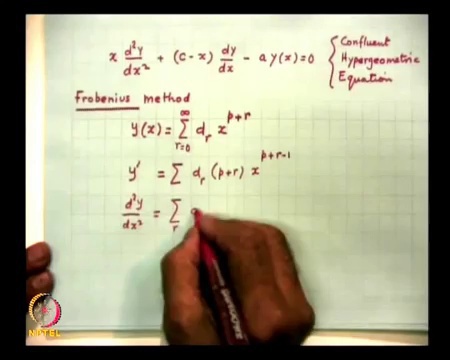 x d²y/dx² + (c - x) dy/dx - a y(x) = 0 { Confluent
Hypergeometric
Equation
Frobenius method
y(x) = ∑_{r=0}^{∞} d_r x^{p+r}
y' = ∑ d_r (p+r) x^{p+r-1}
d²y/dx² = ∑_r
NPTEL